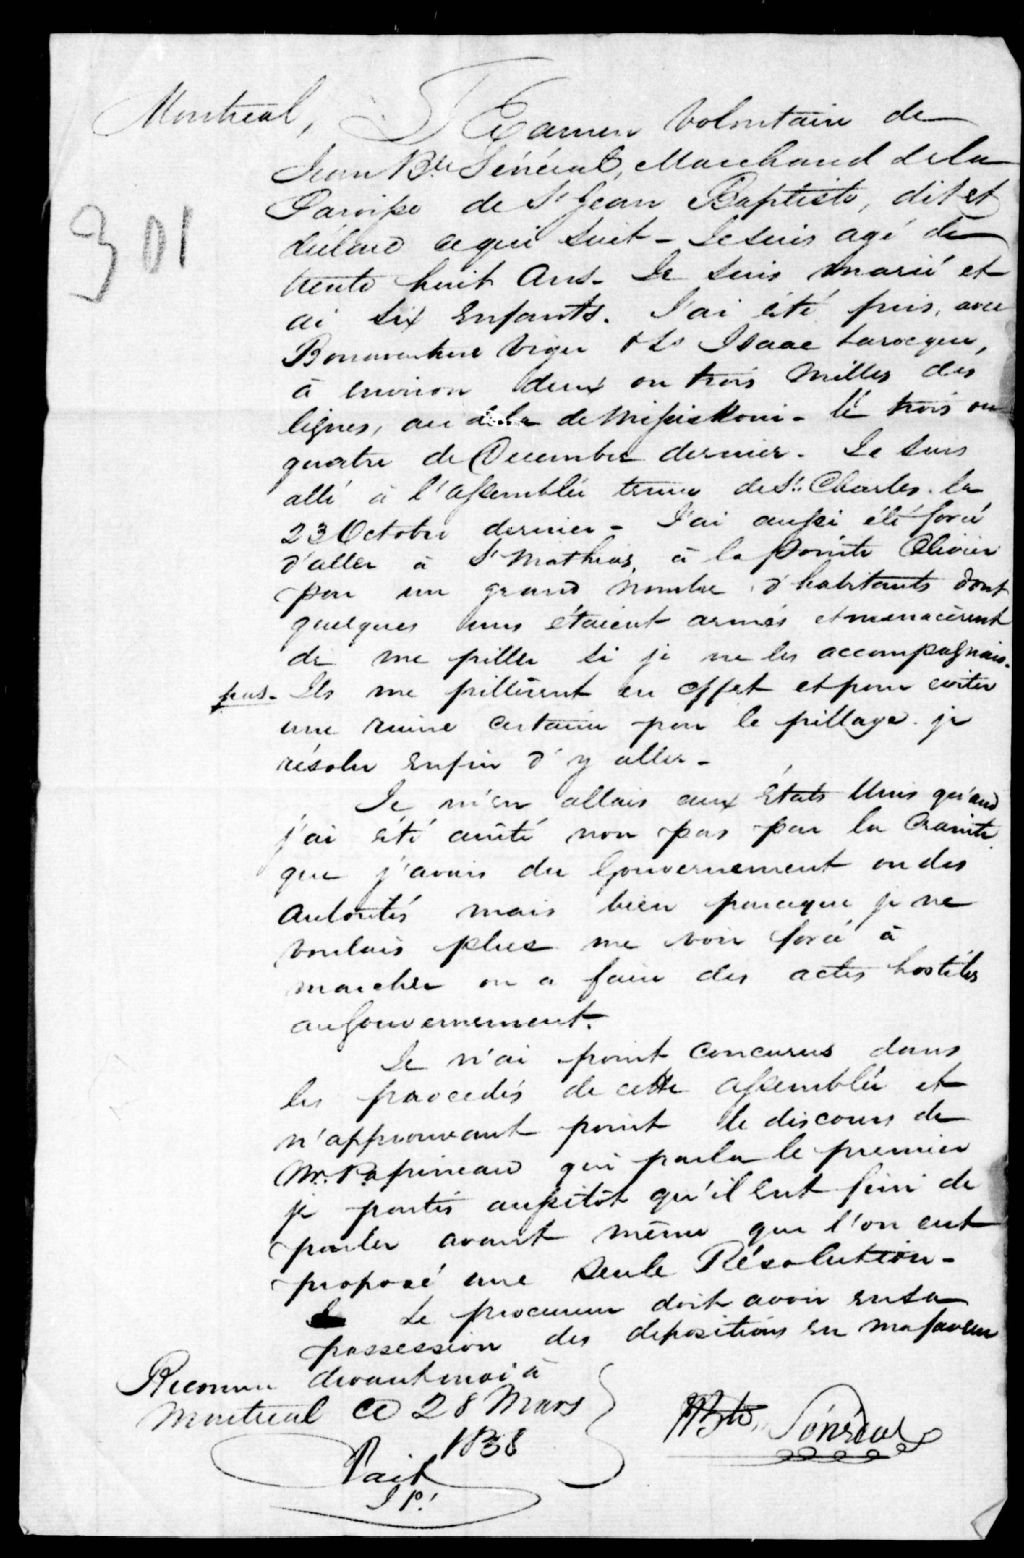 Montreal, Examen Volontaire de
Jean Bte Sénécal, Marchand de la
Paroisse de St Jean Baptiste, dit et
déclare ce qui suit - Je suis agé de
trente huit Ans - Je suis marié et
ai six Enfants. J'ai été pris, avec
Bonaventure Viger & Isaac Larocque,
à environ deux ou trois Milles des
lignes, au dela de Missiskoui - le trois ou
quatre de Décembre dernier. Je suis
allé à l'assemblée tenue de St. Charles le
23 Octobre dernier - J'ai aussi été forcé
d'aller à St Mathias, à la pointe Olivier
par un grand nombre d'habitants dont
quelques uns étaient armés et menacèrent
de me piller si je ne les accompagnais
pas - Ils me pillèrent en effet et pour eviter
une ruine certaine par le pillage je
résolu enfin d'y aller -
Je m'en allais aux États Unis quand
j'ai été arrêté non pas par la Crainte
que j'avais du Gouvernement ou des
Autorités mais bien parceque je ne
voulais plus me voir forcé à
marcher ou a faire des actes hostiles
au Gouvernement.
Je n'ai point concurus dans
les procedés de cette assemblée et
n'approuvant point le discours de
Mr. Papineau qui parla le premier
je partis aussitôt qu'il eut fini de
parler avant même que l'on eut
proposé une seule Résolution -
Le procureur doit avoir en sa
possession des depositions en ma faveur
Reconnu devant moi à
Montreal ce 28 Mars
1838
JBte. Sénécal
J P.
301